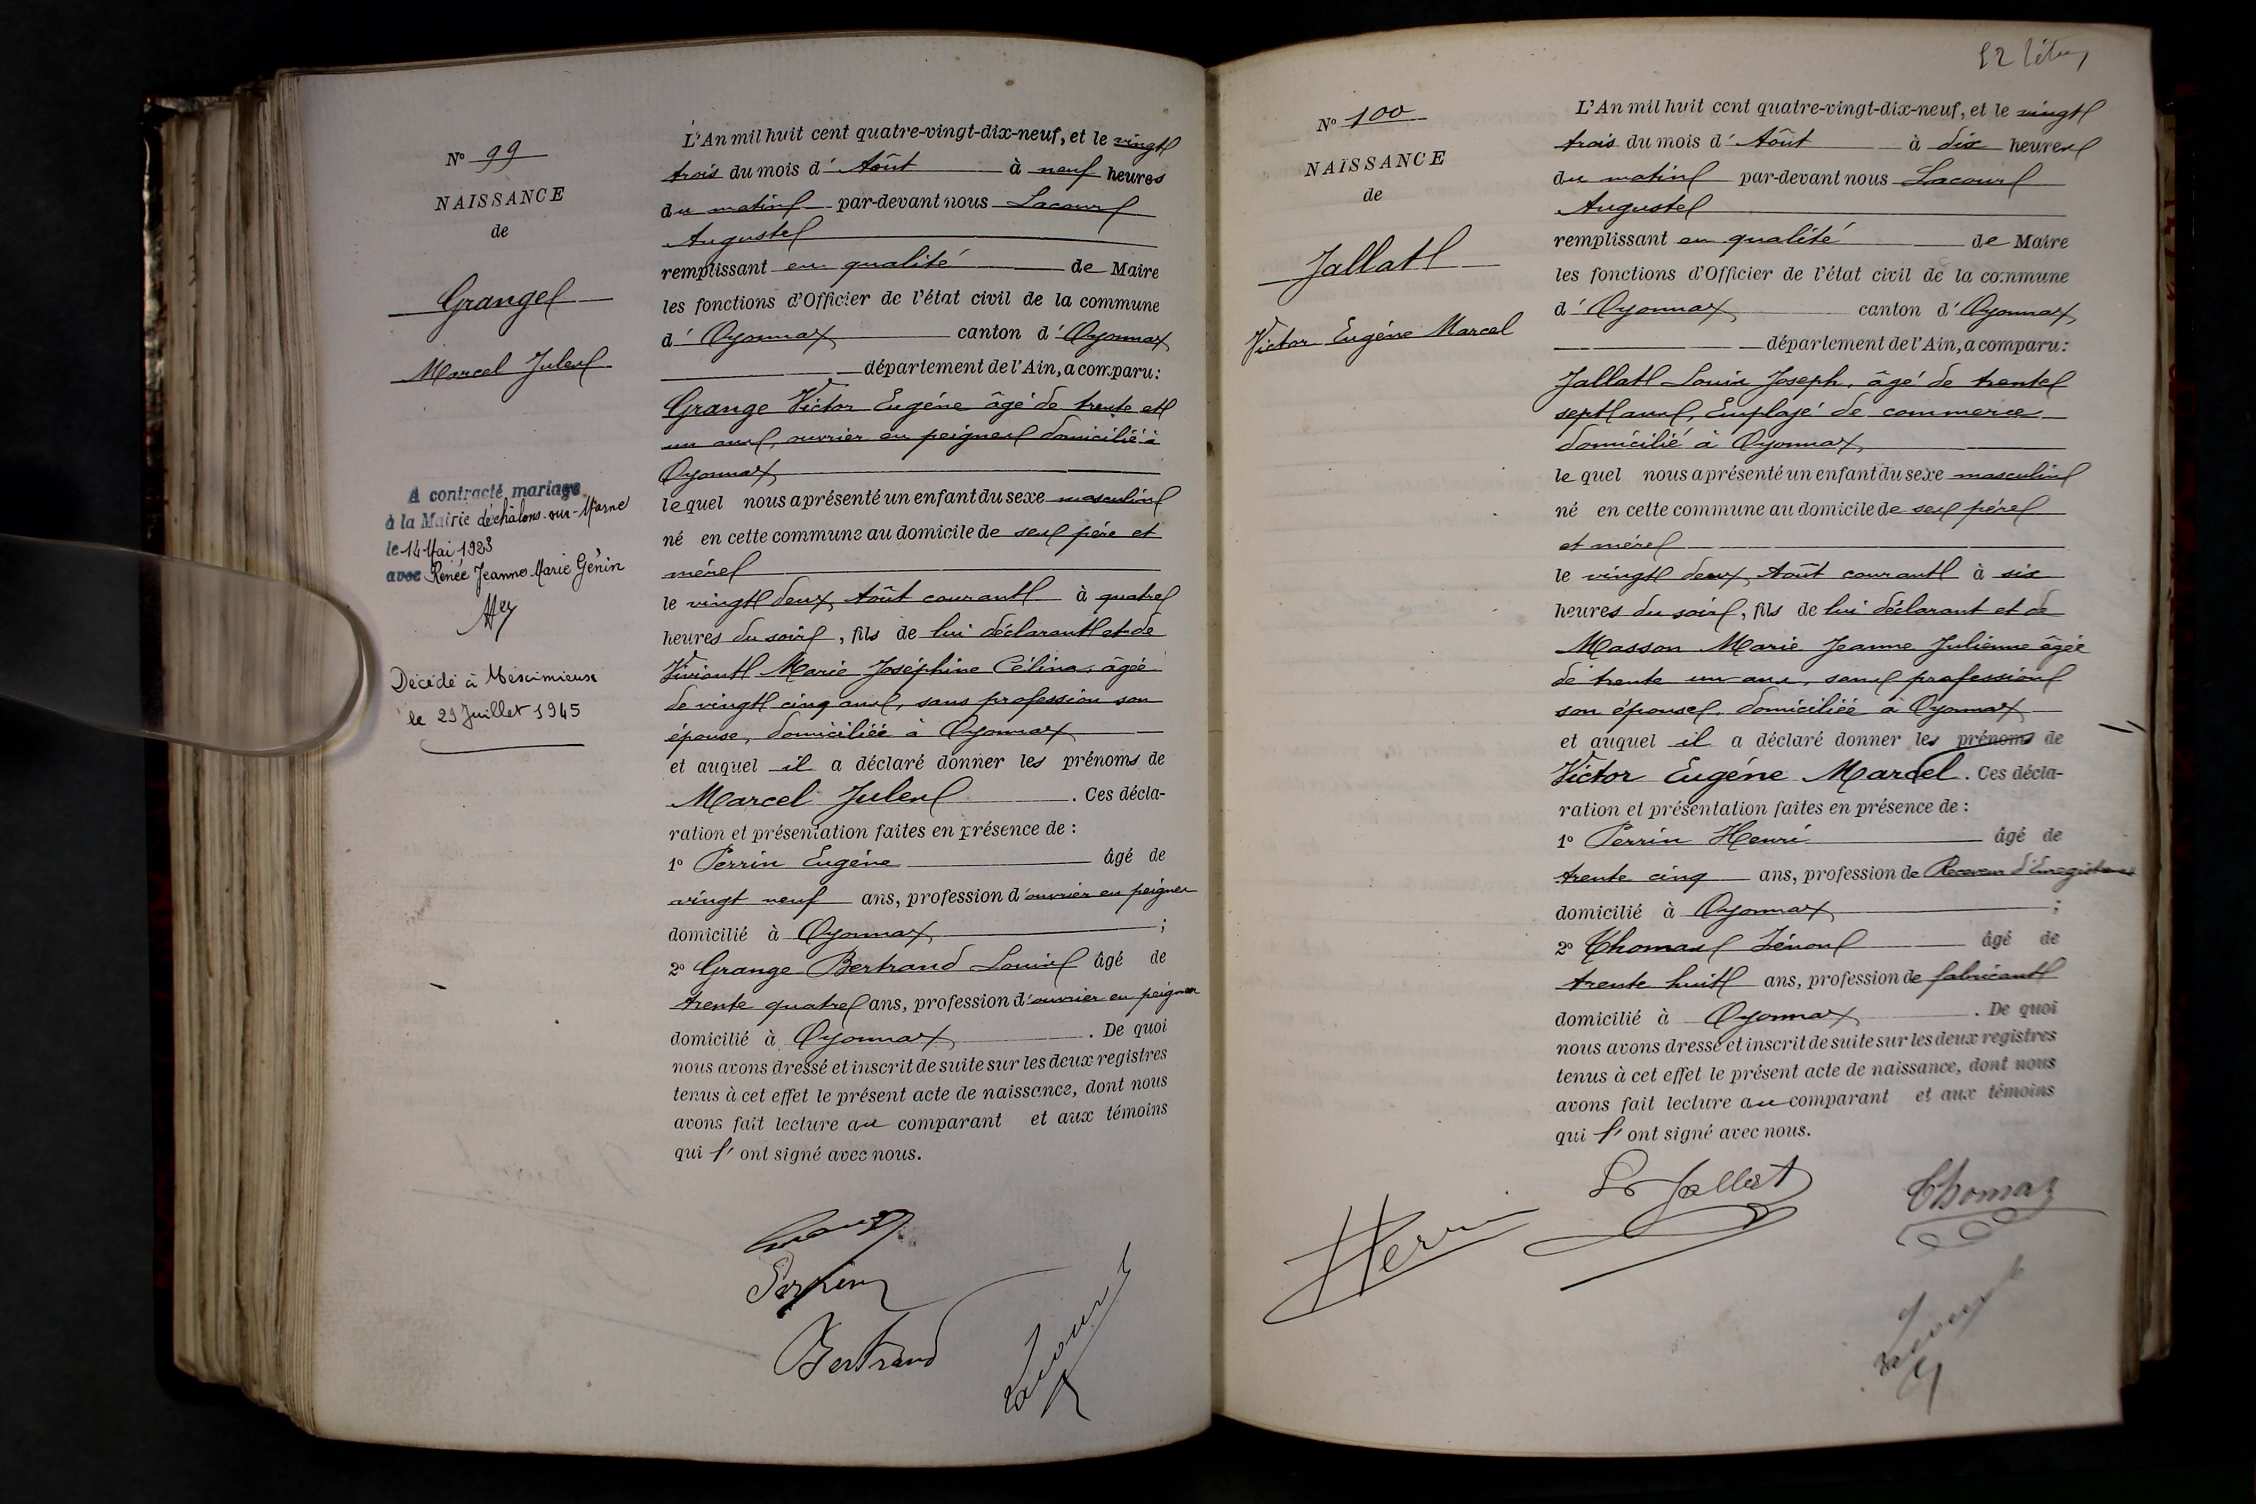 N° 99
NAISSANCE
de
Grange
Marcel Jules
A contracté mariage
à la Mairie de Châlons-sur-Marne
le 14 Mai 1923
avec Renée Jeanne Marie Génin
Décédé à Meximieux
le 29 Juillet 1945
L'An mil huit cent quatre-vingt-dix-neuf, et le vingt
trois du mois d'Août à neuf heures
du matin par-devant nous Lacour
Auguste
remplissant en qualité de Maire
les fonctions d'Officier de l'état civil de la commune
d'Oyonnax canton d'Oyonnax
département de l'Ain, a comparu :
Grange Victor Eugène âgé de trente et
un ans, ouvrier en peignes domicilié à
Oyonnax
lequel nous a présenté un enfant du sexe masculin
né en cette commune au domicile de ses père et
mère
le vingt deux Août courant à quatre
heures du soir, fils de lui déclarant et de
Marie Joséphine Célina, âgée
de vingt cinq ans, sans profession son
épouse, domiciliée à Oyonnax
et auquel il a déclaré donner les prénoms de
Marcel Jules. Ces décla-
ration et présentation faites en présence de :
1° Perrin Eugène âgé de
vingt neuf ans, profession d'ouvrier en peignes
domicilié à Oyonnax ;
2° Grange Bertrand Louis âgé de
trente quatre ans, profession d'ouvrier en peignes
domicilié à Oyonnax. De quoi
nous avons dressé et inscrit de suite sur les deux registres
tenus à cet effet le présent acte de naissance, dont nous
avons fait lecture au comparant et aux témoins
qui l'ont signé avec nous.
Grange
Perrin
Bertrand
Lacour
52
N° 100
NAISSANCE
de
Jallat
Victor Eugène Marcel
L'An mil huit cent quatre-vingt-dix-neuf, et le vingt
trois du mois d'Août à dix heures
du matin par-devant nous Lacour
Auguste
remplissant en qualité de Maire
les fonctions d'Officier de l'état civil de la commune
d'Oyonnax canton d'Oyonnax
département de l'Ain, a comparu :
Jallat Louis Joseph, âgé de trente
sept ans, Employé de commerce
domicilié à Oyonnax
lequel nous a présenté un enfant du sexe masculin
né en cette commune au domicile de ses père
et mère
le vingt deux Août courant à six
heures du soir, fils de lui déclarant et de
Masson Marie Jeanne Julienne âgée
de trente un ans, sans profession
son épouse, domiciliée à Oyonnax
et auquel il a déclaré donner les prénoms de
Victor Eugène Marcel. Ces décla-
ration et présentation faites en présence de :
1° Perrin Henri âgé de
trente cinq ans, profession de Receveur d'Enregistrement
domicilié à Oyonnax ;
2° Thomas Zénon âgé de
trente huit ans, profession de fabricant
domicilié à Oyonnax. De quoi
nous avons dressé et inscrit de suite sur les deux registres
tenus à cet effet le présent acte de naissance, dont nous
avons fait lecture au comparant et aux témoins
qui l'ont signé avec nous.
Ls Jallat
Thomas
HPerrin
Lacour